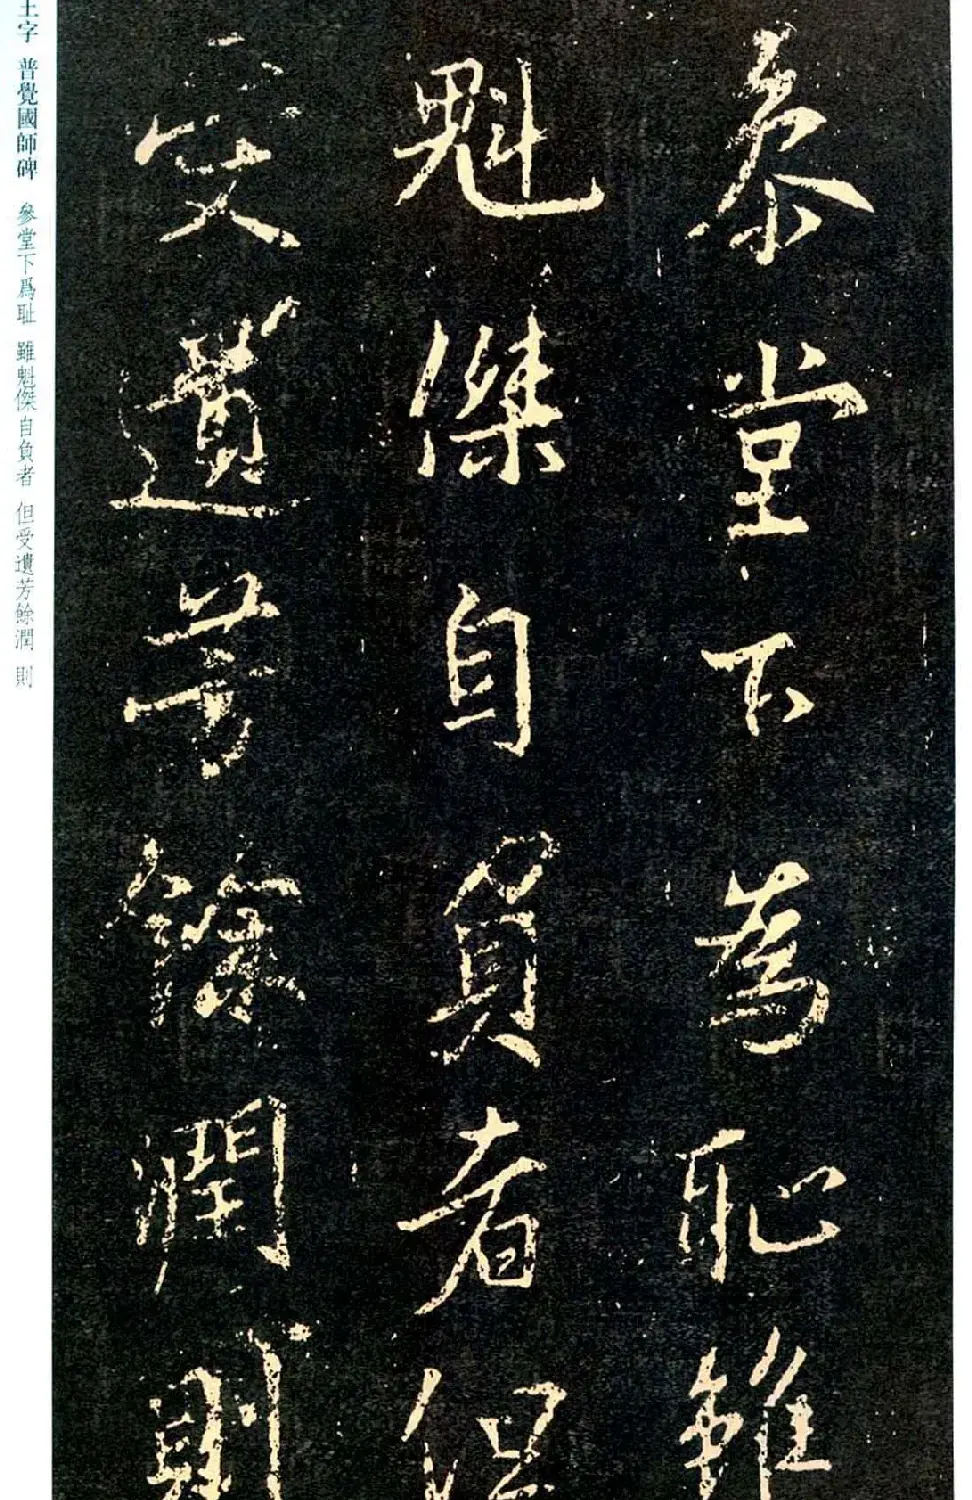 叅堂下為恥雖
魁傑自負者但
受遺芳餘潤則
王字 普覺國師碑 參堂下爲耻 雖魁傑自負者 但受遺芳餘潤 則